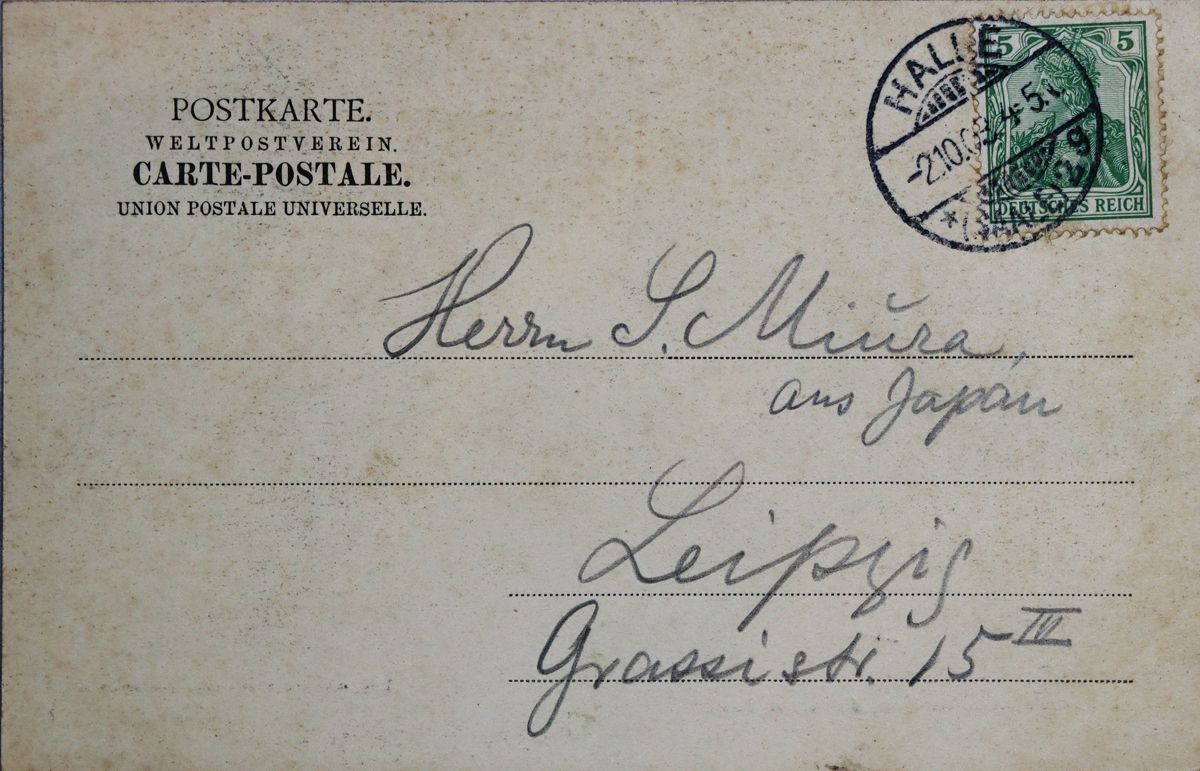 POSTKARTE.
WELTPOSTVEREIN.
CARTE-POSTALE.
UNION POSTALE UNIVERSELLE.
HALLE
-2.10.03. 4-5
*(SAALE) 2 g
5 5
DEUTSCHES REICH
Herrn S. Miŭra,
aus Japan
Leipzig
Grassistr. 15 IV